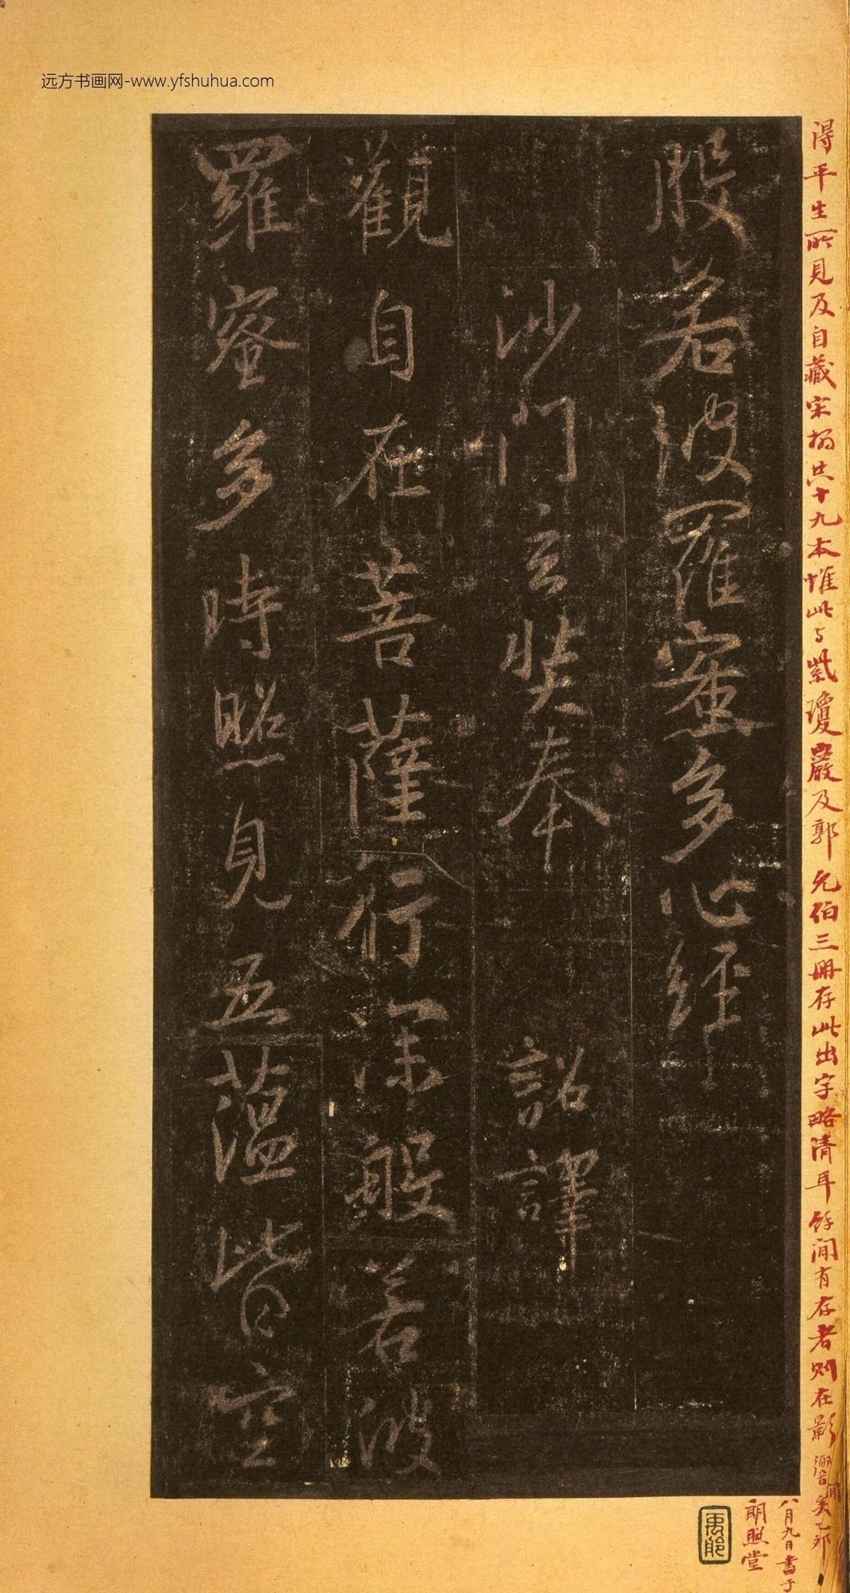 远方书画网-www.yfshuhua.com
得平生所見及自藏宋搨共十九本惟此与紫瓊巖及郭允伯三冊存此出字略清耳餘間有存者则在影響間矣乙卯
八月九日書于
朗照堂
般若波羅蜜多心經
沙門玄奘奉 詔譯
觀自在菩薩行深般若波
羅蜜多時照見五蘊皆空